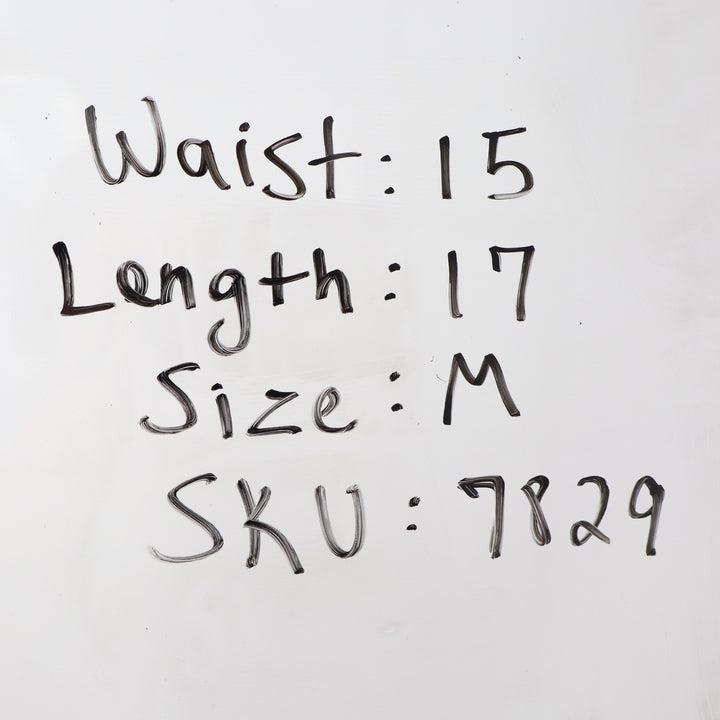 Waist: 15
Length: 17
Size: M
SKU: 7829